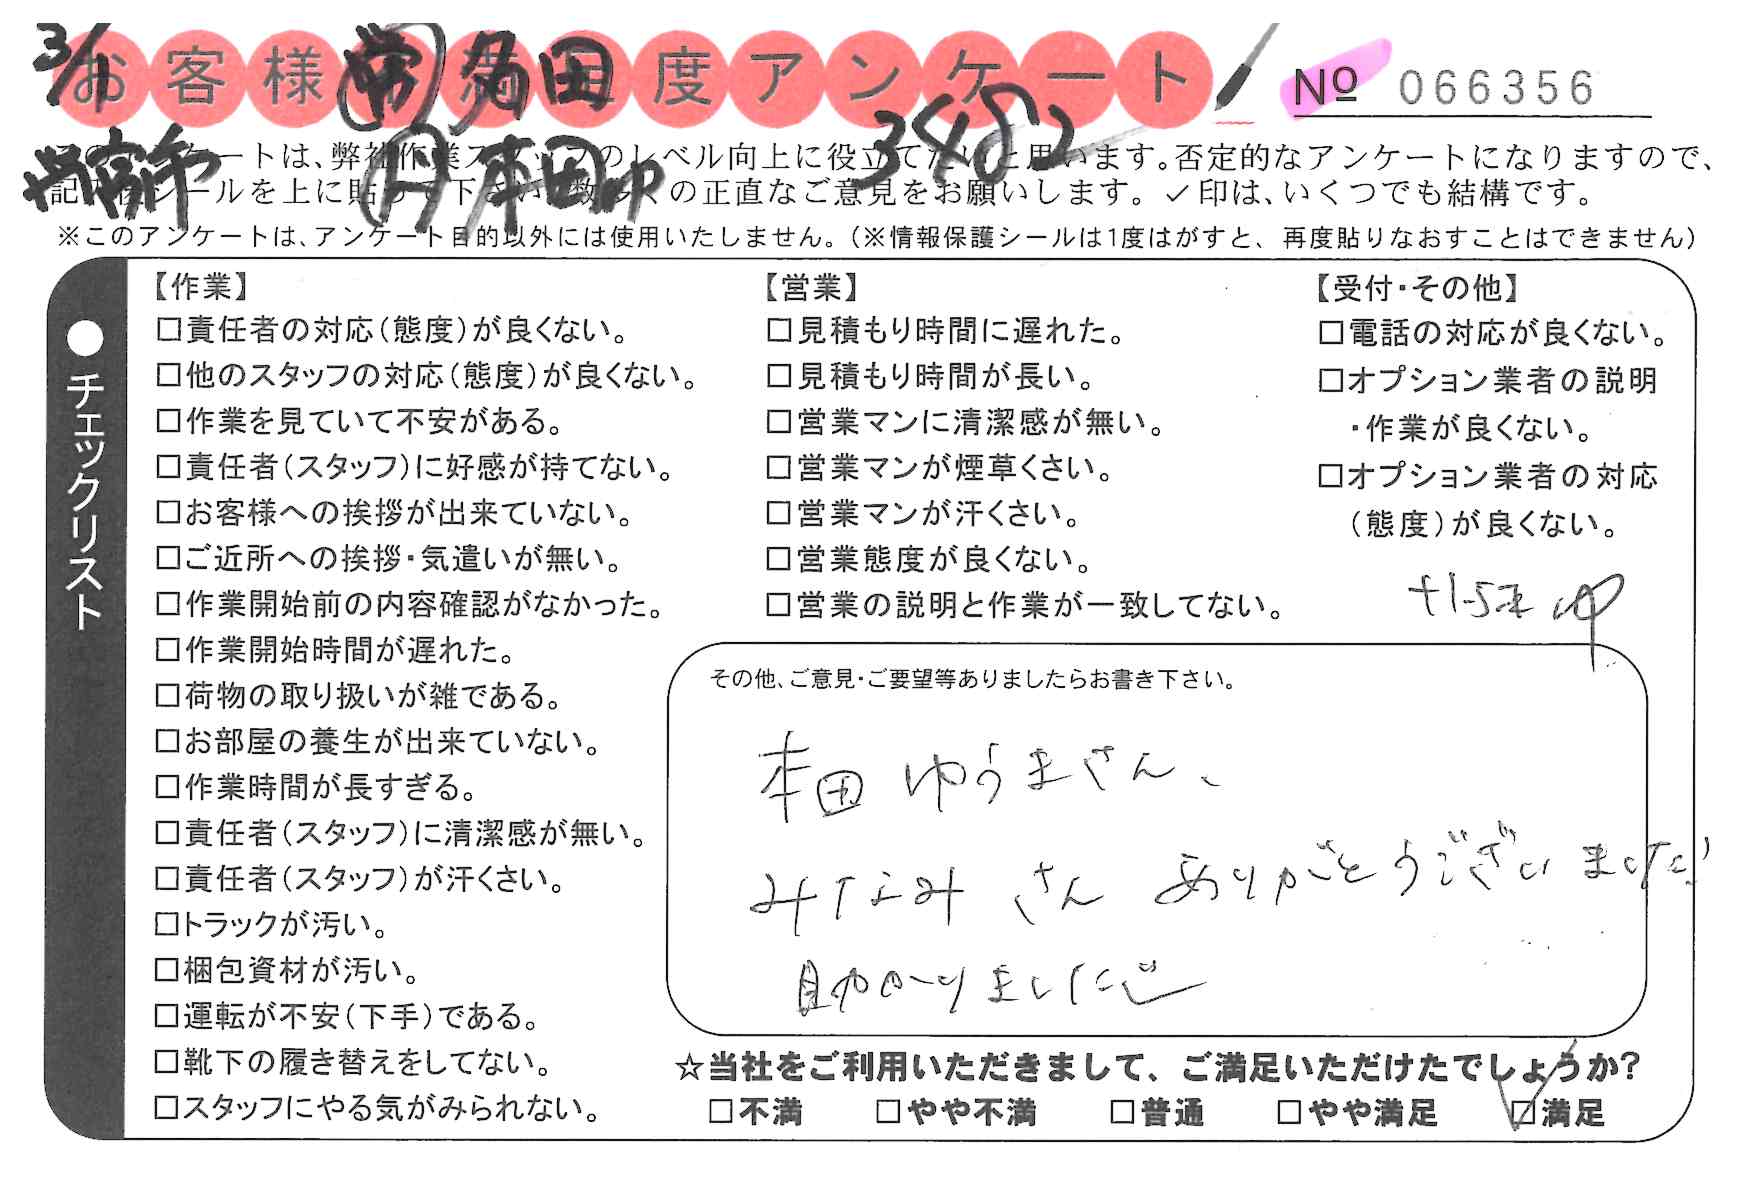 3/1
お客様満足度アンケート
営 多田
№ 066356
本田ゆ
3482
このアンケートは、弊社作業スタッフのレベル向上に役立てたいと思います。否定的なアンケートになりますので、
記入後シールを上に貼って下さい。数多くの正直なご意見をお願いします。✓印は、いくつでも結構です。
※このアンケートは、アンケート目的以外には使用いたしません。（※情報保護シールは1度はがすと、再度貼りなおすことはできません）
●チェックリスト
【作業】
□責任者の対応（態度）が良くない。
□他のスタッフの対応（態度）が良くない。
□作業を見ていて不安がある。
□責任者（スタッフ）に好感が持てない。
□お客様への挨拶が出来ていない。
□ご近所への挨拶・気遣いが無い。
□作業開始前の内容確認がなかった。
□作業開始時間が遅れた。
□荷物の取り扱いが雑である。
□お部屋の養生が出来ていない。
□作業時間が長すぎる。
□責任者（スタッフ）に清潔感が無い。
□責任者（スタッフ）が汗くさい。
□トラックが汚い。
□梱包資材が汚い。
□運転が不安（下手）である。
□靴下の履き替えをしてない。
□スタッフにやる気がみられない。
【営業】
□見積もり時間に遅れた。
□見積もり時間が長い。
□営業マンに清潔感が無い。
□営業マンが煙草くさい。
□営業マンが汗くさい。
□営業態度が良くない。
□営業の説明と作業が一致してない。
【受付・その他】
□電話の対応が良くない。
□オプション業者の説明
・作業が良くない。
□オプション業者の対応
（態度）が良くない。
その他、ご意見・ご要望等ありましたらお書き下さい。
本田 ゆうまさん、
みなみ さん ありがとうございました!
助かりました
☆当社をご利用いただきまして、ご満足いただけたでしょうか?
□不満 □やや不満 □普通 □やや満足 ☑満足